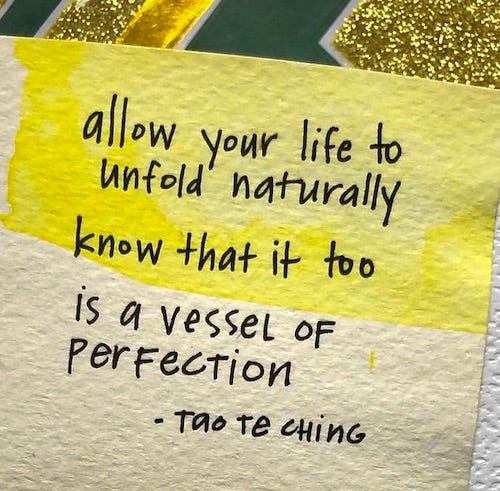 allow your life to
unfold naturally
know that it too
is a vessel of
perfection
- Tao Te Ching